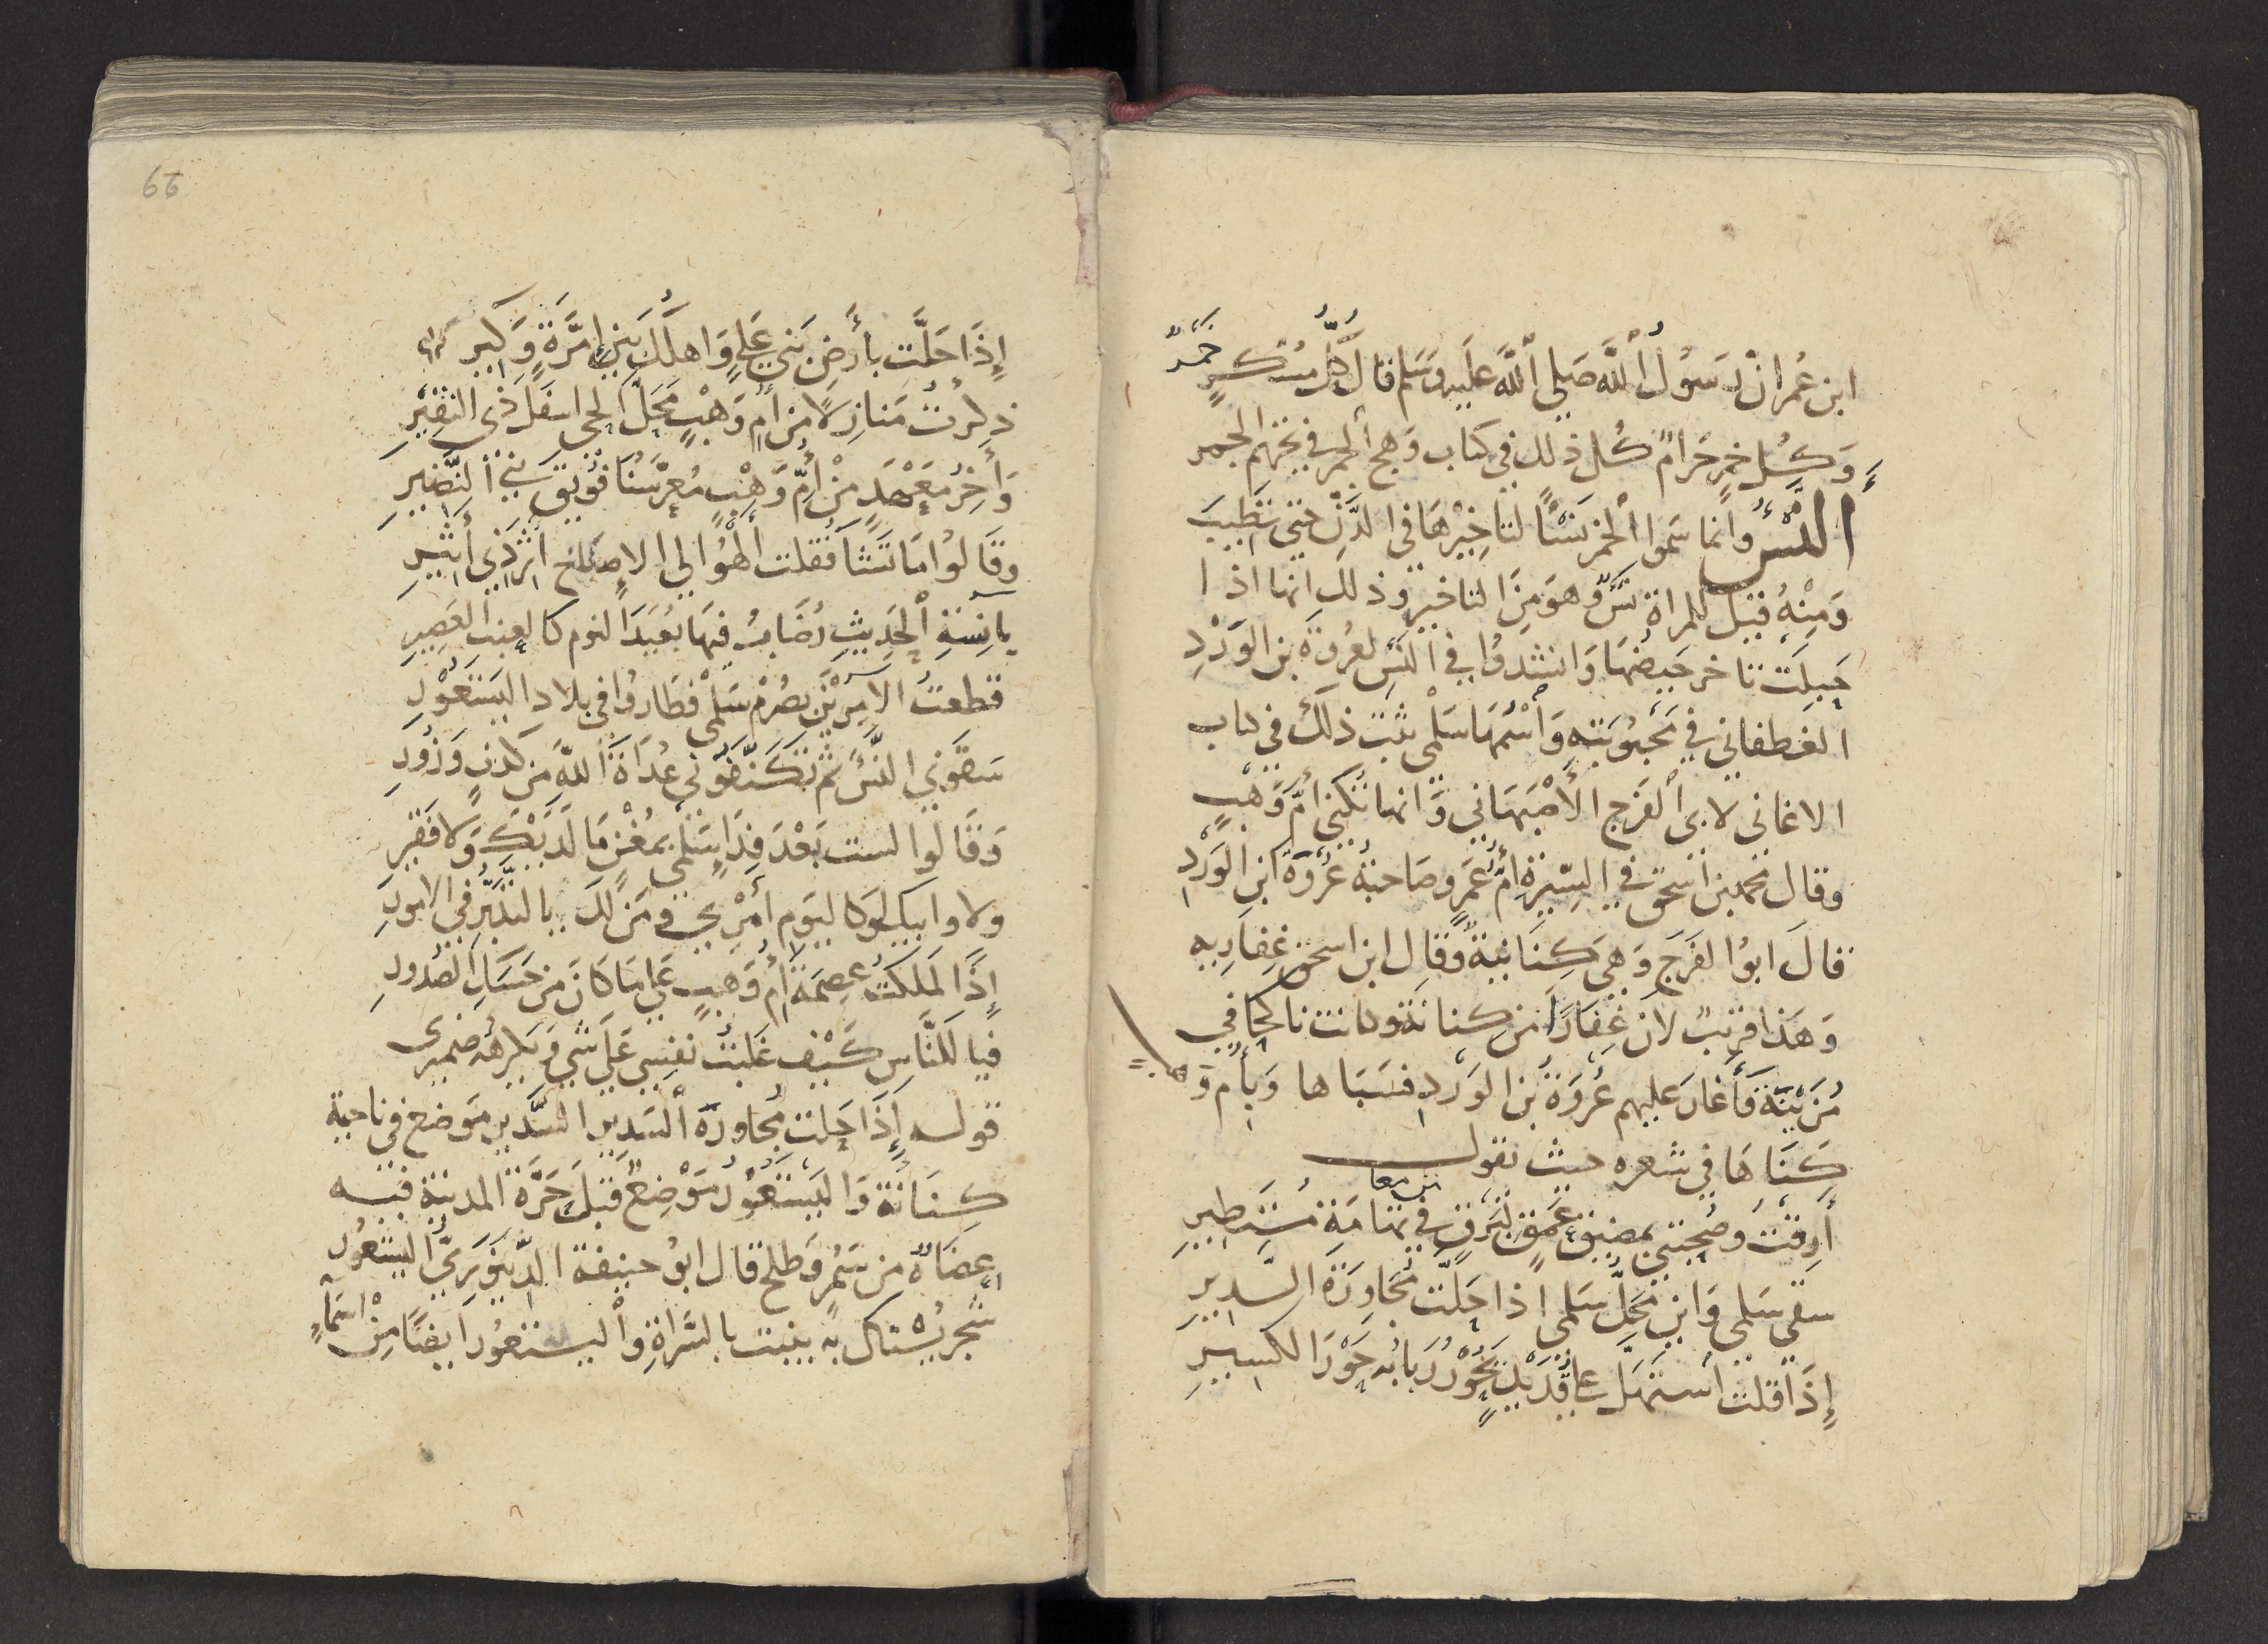 ابن عُمران رَسُولُ اللَّه صَلى اللَّه عليه وسَلم قال كُلُّ مُسْكِرٍ خَمْرٌ
وَكُل خمرٍ حَرامٌ كُل ذلك في كتاب وَهج الجمر في تحريم الخمر
النَّسْءُ وانما سَموا الخمر نَسْئًا لتاخِيْرهَا في الدَّنّ حتى تَطِيبَ
وَمِنْهُ قيل للمراة نَسْؤٌ وهوَ مِنَ التاخير وذلك انها اذا
حَبِلَت تاخر حَيضهَا وَانشدوُا في النَسْءِ لعُروَة بن الوَرْدِ
الغطفاني في مَحبُوبَتِهِ وَاسْمُهَا سَلْمى ثبت ذلكَ في كتاب
الاغاني لابى الفَرَج الأَصْبَهَاني وَانها تكنى امَّ وَهْبٍ
وقال محمد بن اسحق في السِّيْرَةِ امُّ عَمرٍو صَاحبَةُ عُرْوَة ابن الوَرْدِ
قالَ ابوُ الفَرَج وَهيَ كِنَانِيةٌ وقال ابن اسحق غِفارِيه
وَهَذا قريبٌ لان غِفَارًا من كِنانَة وكانت ناكحًا في
مُزَيْنَة فَأَغَارَ عليهم عُرْوَةُ بن الوَرْدِ فسَبَاها وَبأم وَهب
كَنَاهَا في شعره حيث يقول
أَرِقْتُ وصُحبَتي بمضيق عَمْقٍ لبَرقٍ في تهامَةَ مُستَطِيرِ
من معا
سَقى سَلمى وَاين مَحَلُّ سَلمى اذا حَلَّت مُجَاوِرَةَ السَّديرِ
إِذَا قلت استَهلَّ على قُدَيْدٍ يَحُوْرُ رَبابُه حَوْرَ الكسيرِ
66
إِذَا حَلَّت بأَرضِ بَني عَلي وَاهلُكَ بَين إمَّرَةٍ وَكِيرِ
ذكرتُ مَنازلاً من أمّ وَهْبٍ مَحَلَّ الحي اسفَل ذي النقِيرِ
وَآخِرُ مَعْهَدٍ مِنْ أمّ وَهْبٍ مُعرَّسُنَا فُوَيْقَ بني النَّضيرِ
وقَالوُا مَا تَشَا فقلت ألهُوْا لى الاِصبَاح اثرَ ذي أثيرِ
بآنِسَةِ الحَدِيثِ رُضَابُ فيهَا بُعَيْدَ النوم كالعِنبِ العَصِيرِ
قطعتُ الآمِرَيْن بصُرْم سَلْمى فطَارُوا في بلاد اليَستَعُوْرِ
سَقَوْني النَّسْءَ ثم تكَنَّفُوْني عُدَاةُ اللَّهِ من كَذبٍ وَزُورِ
وَقَالوا لست بَعْدَ فِدَاءِ سَلْمى بمُغْنٍ مَا لَدَيْكَ وَلا فَقيرِ
ولا وابيكَ لوكاليَوم أمْري وَمَن لكَ بالتَدَبُّرِ في الامورِ
إِذًا لَمَلكتُ عِصمَةَ أمّ وَهبٍ عَلى مَا كانَ مِنْ حَسَكِ الصُدُورِ
فيا للنَّاسِ كَيْفَ غَلبتُ نفسي عَلى شي وَيَكرهُه ضميرى
قوله إِذَا حَلت مُجَاورَة السَدِير السَّدير مَوضعٌ في ناحية
كِنَانَة وَاليَستَعُوْرُ مَوْضِعٌ قَبلَ حَرَّة المدينة فيه
عِضَاهٌ مِن سَمُرٍ وَطلح قال ابو حنيفة الدّينَوَرِيُّ اليستعُور
شجر يُسْتاك به ينبت بالسَّراةِ وَاليستَعُور ايضًا مِنْ اسْمآءِ